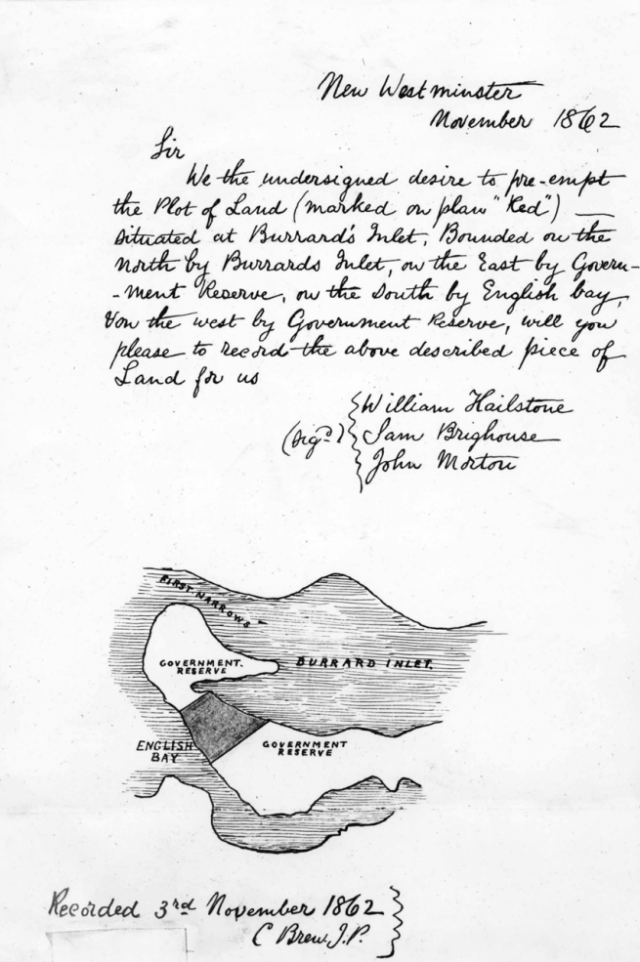 New Westminster
November 1862
Sir
We the undersigned desire to pre-empt
the Plot of Land (marked on plan "Red")
situated at Burrard's Inlet, Bounded on the
North by Burrards Inlet, on the East by Govern-
-ment Reserve, on the South by English bay,
& on the west by Government Reserve, will you
please to record the above described piece of
Land for us
William Hailstone
(Sigd) Sam Brighouse
John Morton
FIRST NARROWS
GOVERNMENT.
RESERVE
BURRARD INLET.
ENGLISH
BAY
GOVERNMENT
RESERVE
Recorded 3rd November 1862
C Brew J.P.